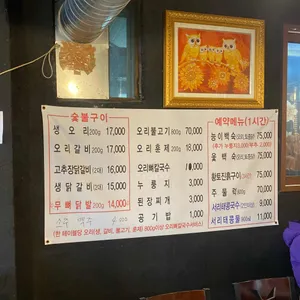 숯불구이
생 오 리 200g 17,000
오리갈비 200g 17,000
고추장닭갈비 (2대) 16,000
생닭갈비 (2대) 15,000
무뼈닭발 200g 14,000
소주 맥주
오리불고기 800g 70,000
오리훈제 200g 18,000
오리뼈칼국수
누룽지 3,000
된장찌개 3,000
공기밥 1,000
예약메뉴 (1시간)
능이백숙 75,000
옻백숙 75,000
황토진흙구이 75,000
주물럭 70,000
서리태콩국수 9,000
서리태콩물 11,000